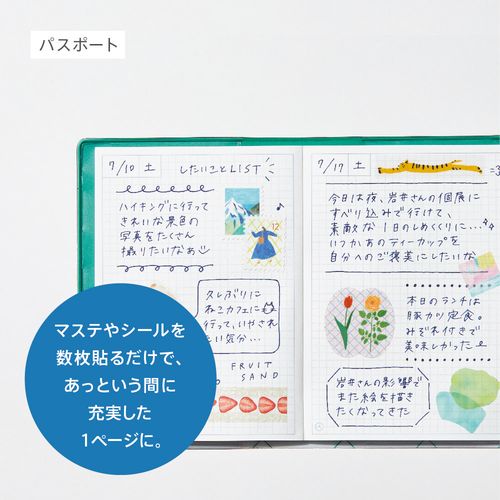 パスポート
7/10 土
したいことLIST
ハイキングに行って
きれいな景色の
写真をたくさん
撮りたいなぁ
12
久しぶりに
ねこカフェに
行って、いやされ
たい気分…
FRUIT
SAND
7/17 土
今日は夜、岩井さんの個展に
すべり込みで行けて、
素敵な1日のしめくくりに…
いつかあのティーカップを
自分へのご褒美にしたいな
本日のランチは
豚カツ定食。
みぞれ付きで
美味しかった
岩井さんの影響で
また絵を描き
たくなってきた
マステやシールを
数枚貼るだけで、
あっという間に
充実した
1ページに。